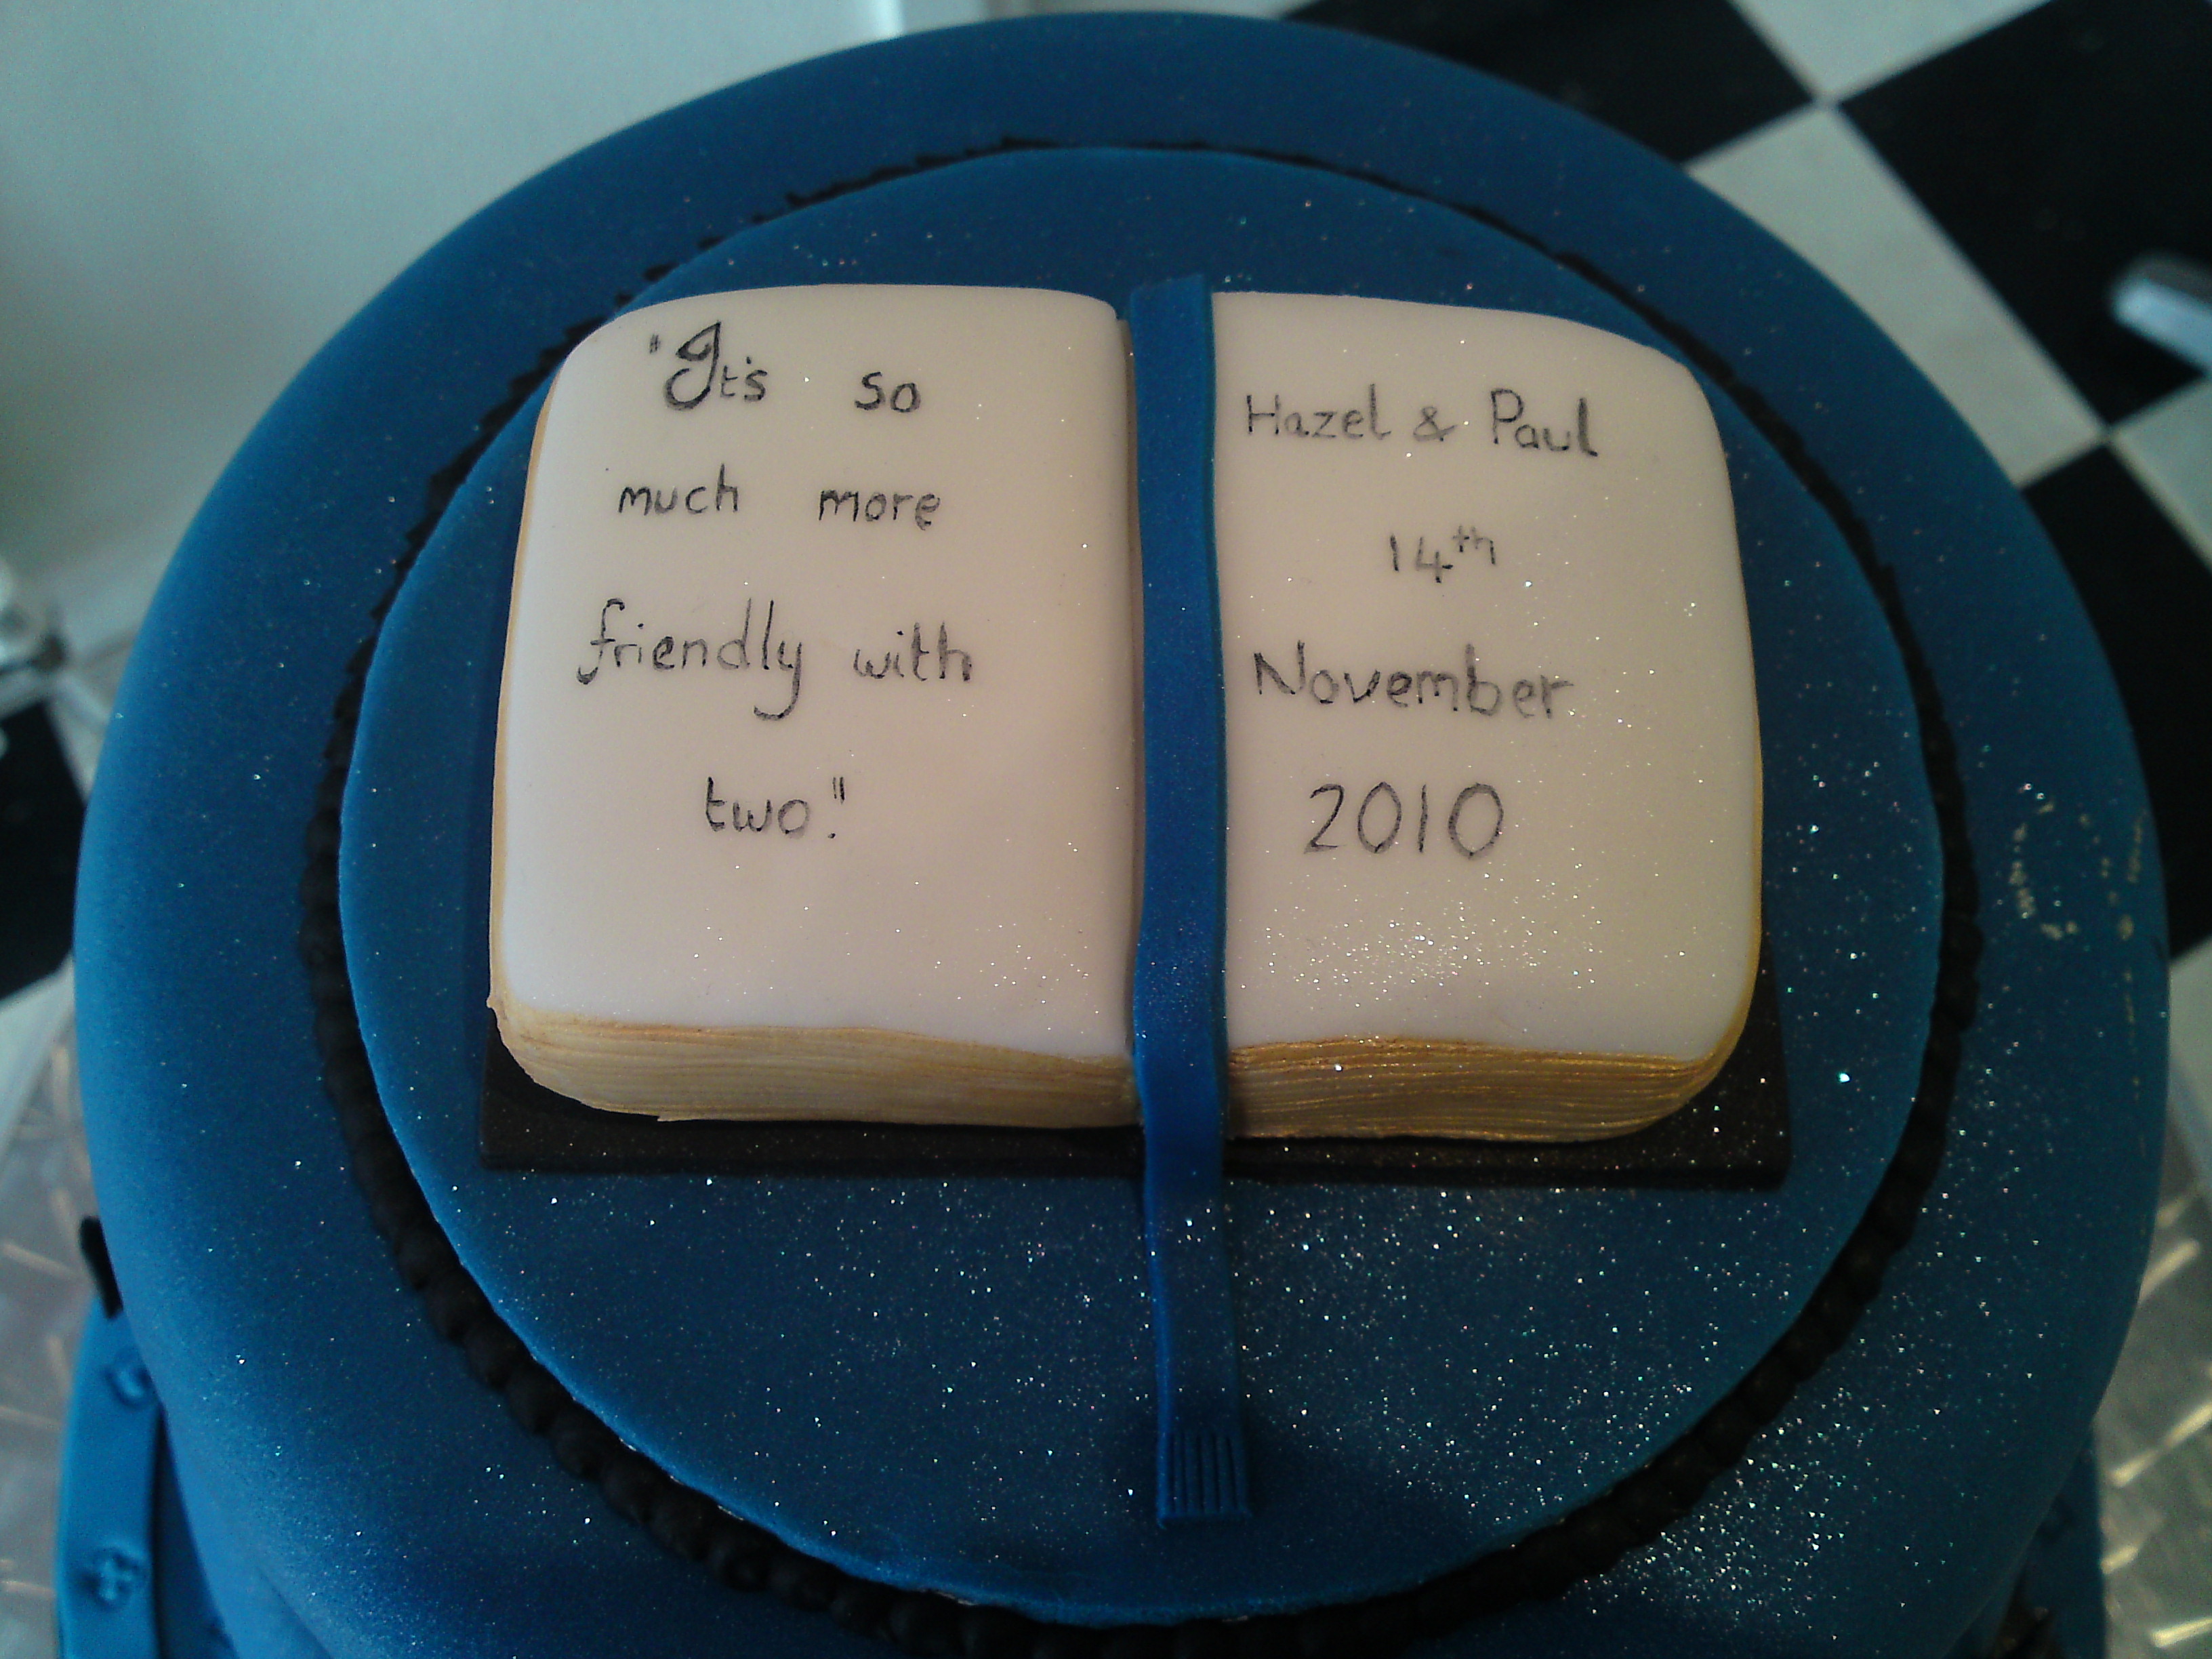 "It's so
much more
friendly with
two."
Hazel & Paul
14th
November
2010